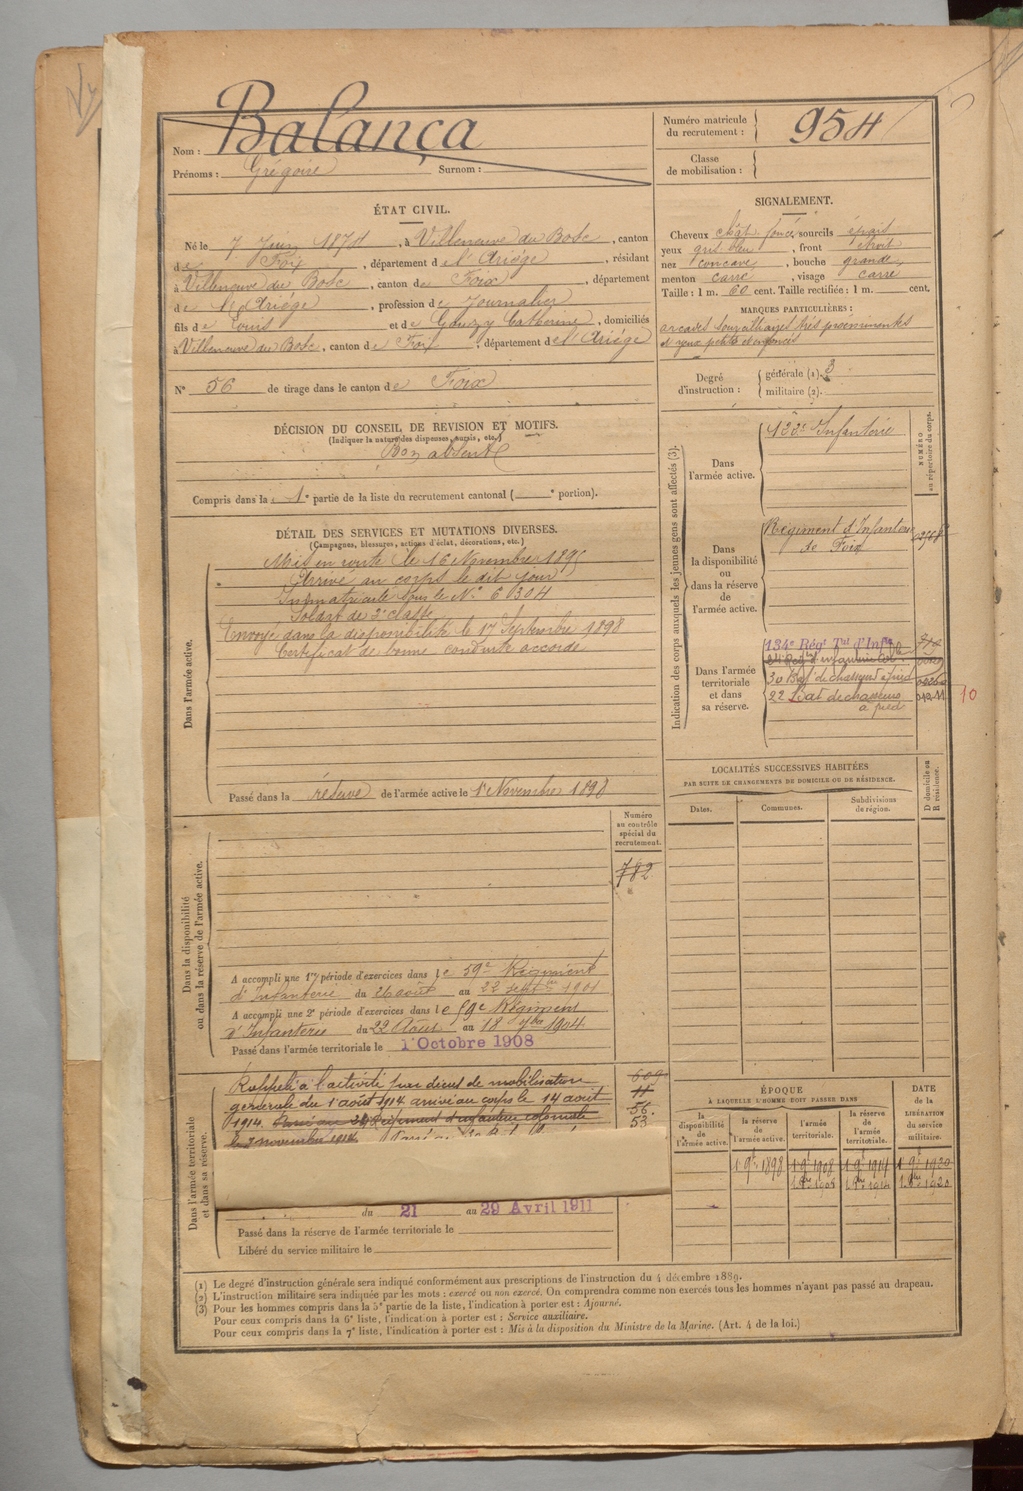 Nom : Balança
Prénoms : Grégoire Surnom :
Numéro matricule du recrutement : 954
Classe de mobilisation :
ÉTAT CIVIL.
Né le 7 Juin 1874, à Villeneuve du Bosc, canton
de Foix, département de l'Ariège, résidant
à Villeneuve du Bosc, canton de Foix, département
de l'Ariège, profession de Journalier
fils de Louis et de Gouzy Catherine, domiciliés
à Villeneuve du Bosc, canton de Foix, département de l'Ariège
N° 56 de tirage dans le canton de Foix
SIGNALEMENT.
Cheveux chât. foncé sourcils épais
yeux gris bleu, front étroit
nez concave, bouche grande
menton carré, visage carré
Taille : 1 m. 60 cent. Taille rectifiée : 1 m. cent.
MARQUES PARTICULIÈRES :
arcades très proéminentes
et yeux petits et enfoncés
Degré d'instruction : générale (1). 3
militaire (2).
DÉCISION DU CONSEIL DE REVISION ET MOTIFS.
(Indiquer la nature des dispenses, sursis, etc.)
Bon absent
Compris dans la 1e partie de la liste du recrutement cantonal ( e portion).
DÉTAIL DES SERVICES ET MUTATIONS DIVERSES.
(Campagnes, blessures, actions d'éclat, décorations, etc.)
Dans l'armée active.
Mis en route le 16 Novembre 1895
Arrivé au corps le dit jour
Immatriculé sous le N° 6304
Soldat de 2e classe
Envoyé dans la disponibilité le 17 Septembre 1898
Certificat de bonne conduite accordé
Passé dans la réserve de l'armée active le 1er Novembre 1898
Indication des corps auxquels les jeunes gens sont affectés (3).
NUMÉRO au répertoire du corps.
Dans l'armée active.
133e Infanterie
Dans la disponibilité ou dans la réserve de l'armée active.
Régiment d'Infanterie
de Foix
Dans l'armée territoriale et dans sa réserve.
134e Régt Tal d'Infie
24 Régt d'infanterie Cole
30 Bat de chasseurs à pied
22 Bat de chasseurs
à pied
10
LOCALITÉS SUCCESSIVES HABITÉES
PAR SUITE DE CHANGEMENTS DE DOMICILE OU DE RÉSIDENCE.
Dates. Communes. Subdivisions de région. D domicile ou R résidence.
Dans la disponibilité ou dans la réserve de l'armée active.
Numéro au contrôle spécial du recrutement.
782
A accompli une 1re période d'exercices dans le 59e Régiment
d'Infanterie du 26 août au 22 septbre 1901
A accompli une 2e période d'exercices dans le 59e Régiment
d'Infanterie du 22 Août au 18 7bre 1904
Passé dans l'armée territoriale le 1er Octobre 1908
Dans l'armée territoriale et dans sa réserve.
Rappelé à l'activité par décret de mobilisation
générale du 1 août 1914 arrivé au corps le 14 août
1914. Passé au 24 Régiment d'infanterie coloniale
le 3 novembre 1914
609
11
56
53
du 21 au 29 Avril 1911
Passé dans la réserve de l'armée territoriale le
Libéré du service militaire le
ÉPOQUE
À LAQUELLE L'HOMME DOIT PASSER DANS
la disponibilité de l'armée active.
la réserve de l'armée active.
l'armée territoriale.
la réserve de l'armée territoriale.
DATE de la LIBÉRATION du service militaire.
1 9bre 1898 1 9bre 1908 1 9bre 1914 1 9bre 1920
1 8bre 1908 1 8bre 1914 1 8bre 1920
(1) Le degré d'instruction générale sera indiqué conformément aux prescriptions de l'instruction du 4 décembre 1889.
(2) L'instruction militaire sera indiquée par les mots : exercé ou non exercé. On comprendra comme non exercés tous les hommes n'ayant pas passé au drapeau.
(3) Pour les hommes compris dans la 5e partie de la liste, l'indication à porter est : Ajourné.
Pour ceux compris dans la 6e liste, l'indication à porter est : Service auxiliaire.
Pour ceux compris dans la 7e liste, l'indication à porter est : Mis à la disposition du Ministre de la Marine. (Art. 4 de la loi.)